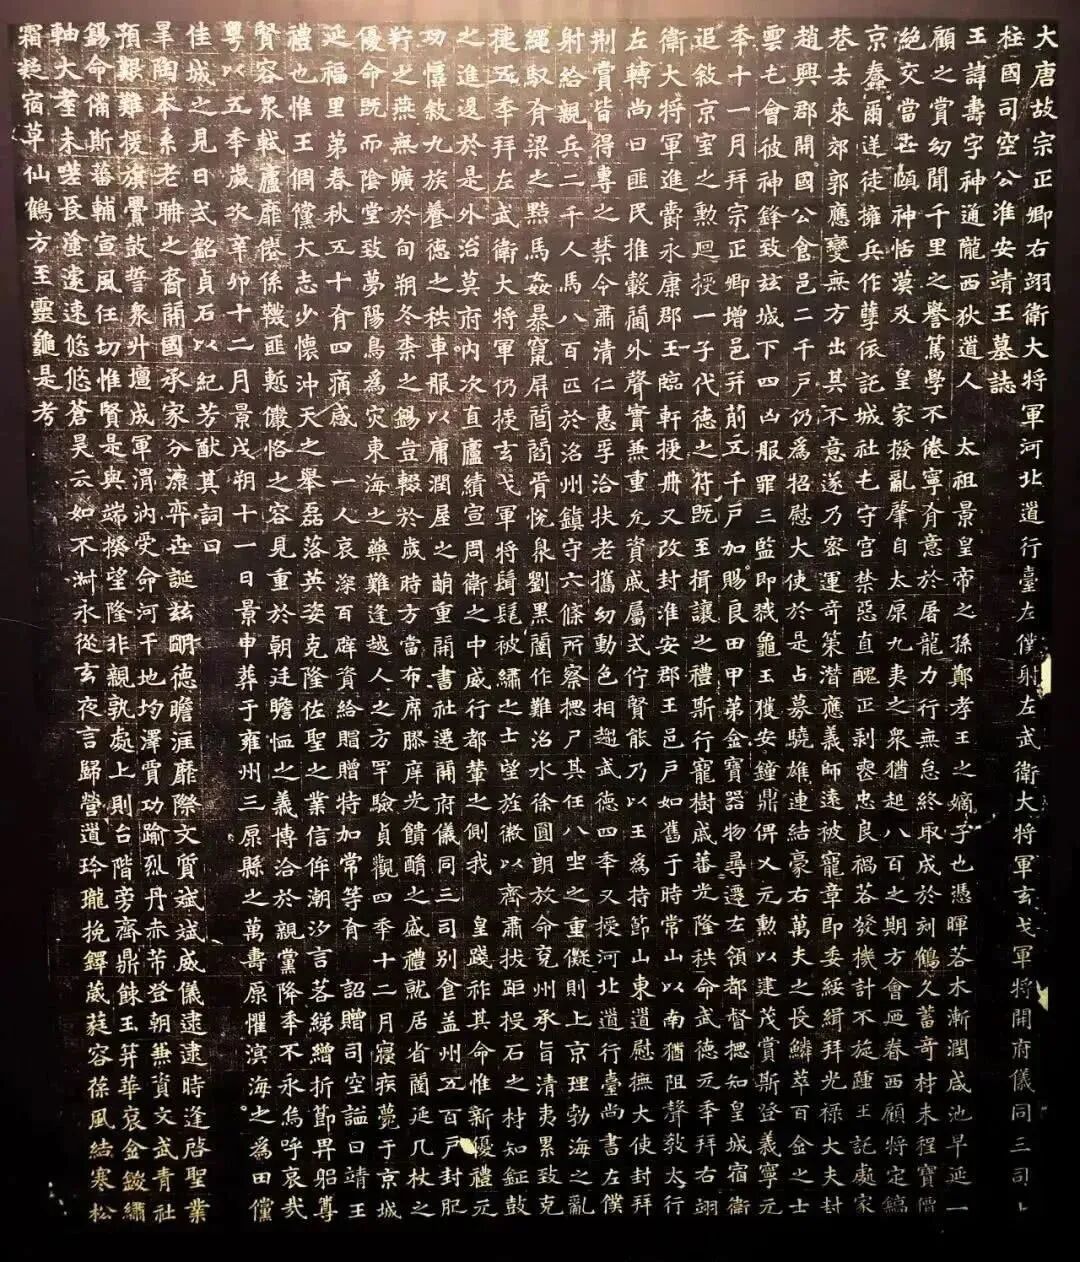 大唐故宗正卿右翊衛大將軍河北道行臺左僕射左武衛大將軍玄戈軍將開府儀同三司上
柱國司空公淮安靖王墓誌
王諱壽字神通隴西狄道人　太祖景皇帝之孫鄭孝王之嫡子也憑暉若木漸潤咸池早延一
顧之賞幼聞千里之譽篤學不倦寧肯意於屠龍力行無怠終取成於刻鶴久蓄奇材未程寶價
絕交當世頤神恬漠及　皇家撥亂肇自太原九夷之衆猶起八百之期方會迺眷西顧將定鎬
京蠢爾送徒擁兵作孽依託城社屯守宮禁惡直醜正剥喪忠良禍若發機計不旋踵王託處家
巷去來郊郭應變無方出其不意遂乃密運奇策潛應義師遠被寵章即委綏緝拜光祿大夫封
趙興郡開國公食邑二千戶仍為招慰大使於是占募驍雄連結豪右萬夫之長鱗萃百金之士
雲屯會彼神鋒致玆城下四凶服罪三監即戮龜玉獲安鐘鼎俾乂元勳以建茂賞斯登義寧元
年十一月拜宗正卿增邑并前五千戶加賜良田甲第金寶器物尋遷左領都督揔知皇城宿衛
追敘京室之勲迴授一子代德之符既至揖讓之禮斯行寵樹戚蕃光隆秩命武德元年拜右翊
衛大將軍進爵永康郡王臨軒授冊又改封淮安郡王邑戶如舊于時常山以南猶阻聲教太行
左轉尚曰匪民推轂閫外聲實兼重允資戚屬式佇賢能乃以王為持節山東道慰撫大使封拜
刑賞皆得專之禁令肅清仁惠孚洽扶老攜幼動色相趨武德四年又授河北道行臺尚書左僕
射給親兵二千人馬八百匹於洺州鎮守六條所察揔尸其任八坐之重儗則上京理勃海之亂
繩馭肯梁之黠馬姦暴竄屏閭閻胥悅梟劉黑闥作難洺水徐圓朗放命兗州承旨清夷累致克
捷五年拜左武衛大將軍仍授玄戈軍將髯髦被繡之士望旌徼以齊肅拔距投石之材知鉦鼓
之進退於是外治莫府內次直廬績宣周衛之中威行都輦之側我　皇踐祚其命惟新優禮元
功愽敘九族養德之秩車服以庸潤屋之蕳重開書社遷開府儀同三司別食益州五百戶封肥
貯之燕無曠於旬朔冬柰之錫豈輟於歲時方當布席膠庠光饋酳之盛禮就居省闥延几杖之
優命既而陰堂致夢陽鳥為灾東海之藥難逢越人之方罕驗貞觀四年十二月寢疾薨于京城
延福里第春秋五十有四痛感　一人哀深百辟資給賵贈特加常等有　詔贈司空謚曰靖王
禮也惟王倜儻大志少懷沖天之舉磊落英姿克隆佐聖之業信侔潮汐言若綈繒折節畢躬尊
賢容衆載廬靡倦係韈匪慙儼恪之容見重於朝廷瞻恤之義博洽於親黨降年不永烏呼哀哉
粤以五年歲次辛卯十二月景戌朔十一日景申葬于雍州三原縣之萬壽原懼溟海之為田儻
佳城之見日式銘貞石以紀芳猷其詞曰
皐陶本系老聃之裔開國承家分源弈世誕玆明德瞻涯靡際文質斌斌威儀逮逮時逢啓聖業
預艱難援旗舋鼓誓衆升壇成軍渭汭受命河干地均澤賈功踰烈丹赤芾登朝兼資文武青社
錫命備斯蕃輔宣風任切惟賢是與端揆望隆非親孰處上則台階旁齊鼎餗玉葬華衮金鏤繡
軸大耋未嗟長塗遽速悠悠蒼昊云如不淑永從玄夜言歸營道玲瓏挽鐸葳蕤容葆風結寒松
霜凝宿草仙鶴方至靈龜是考